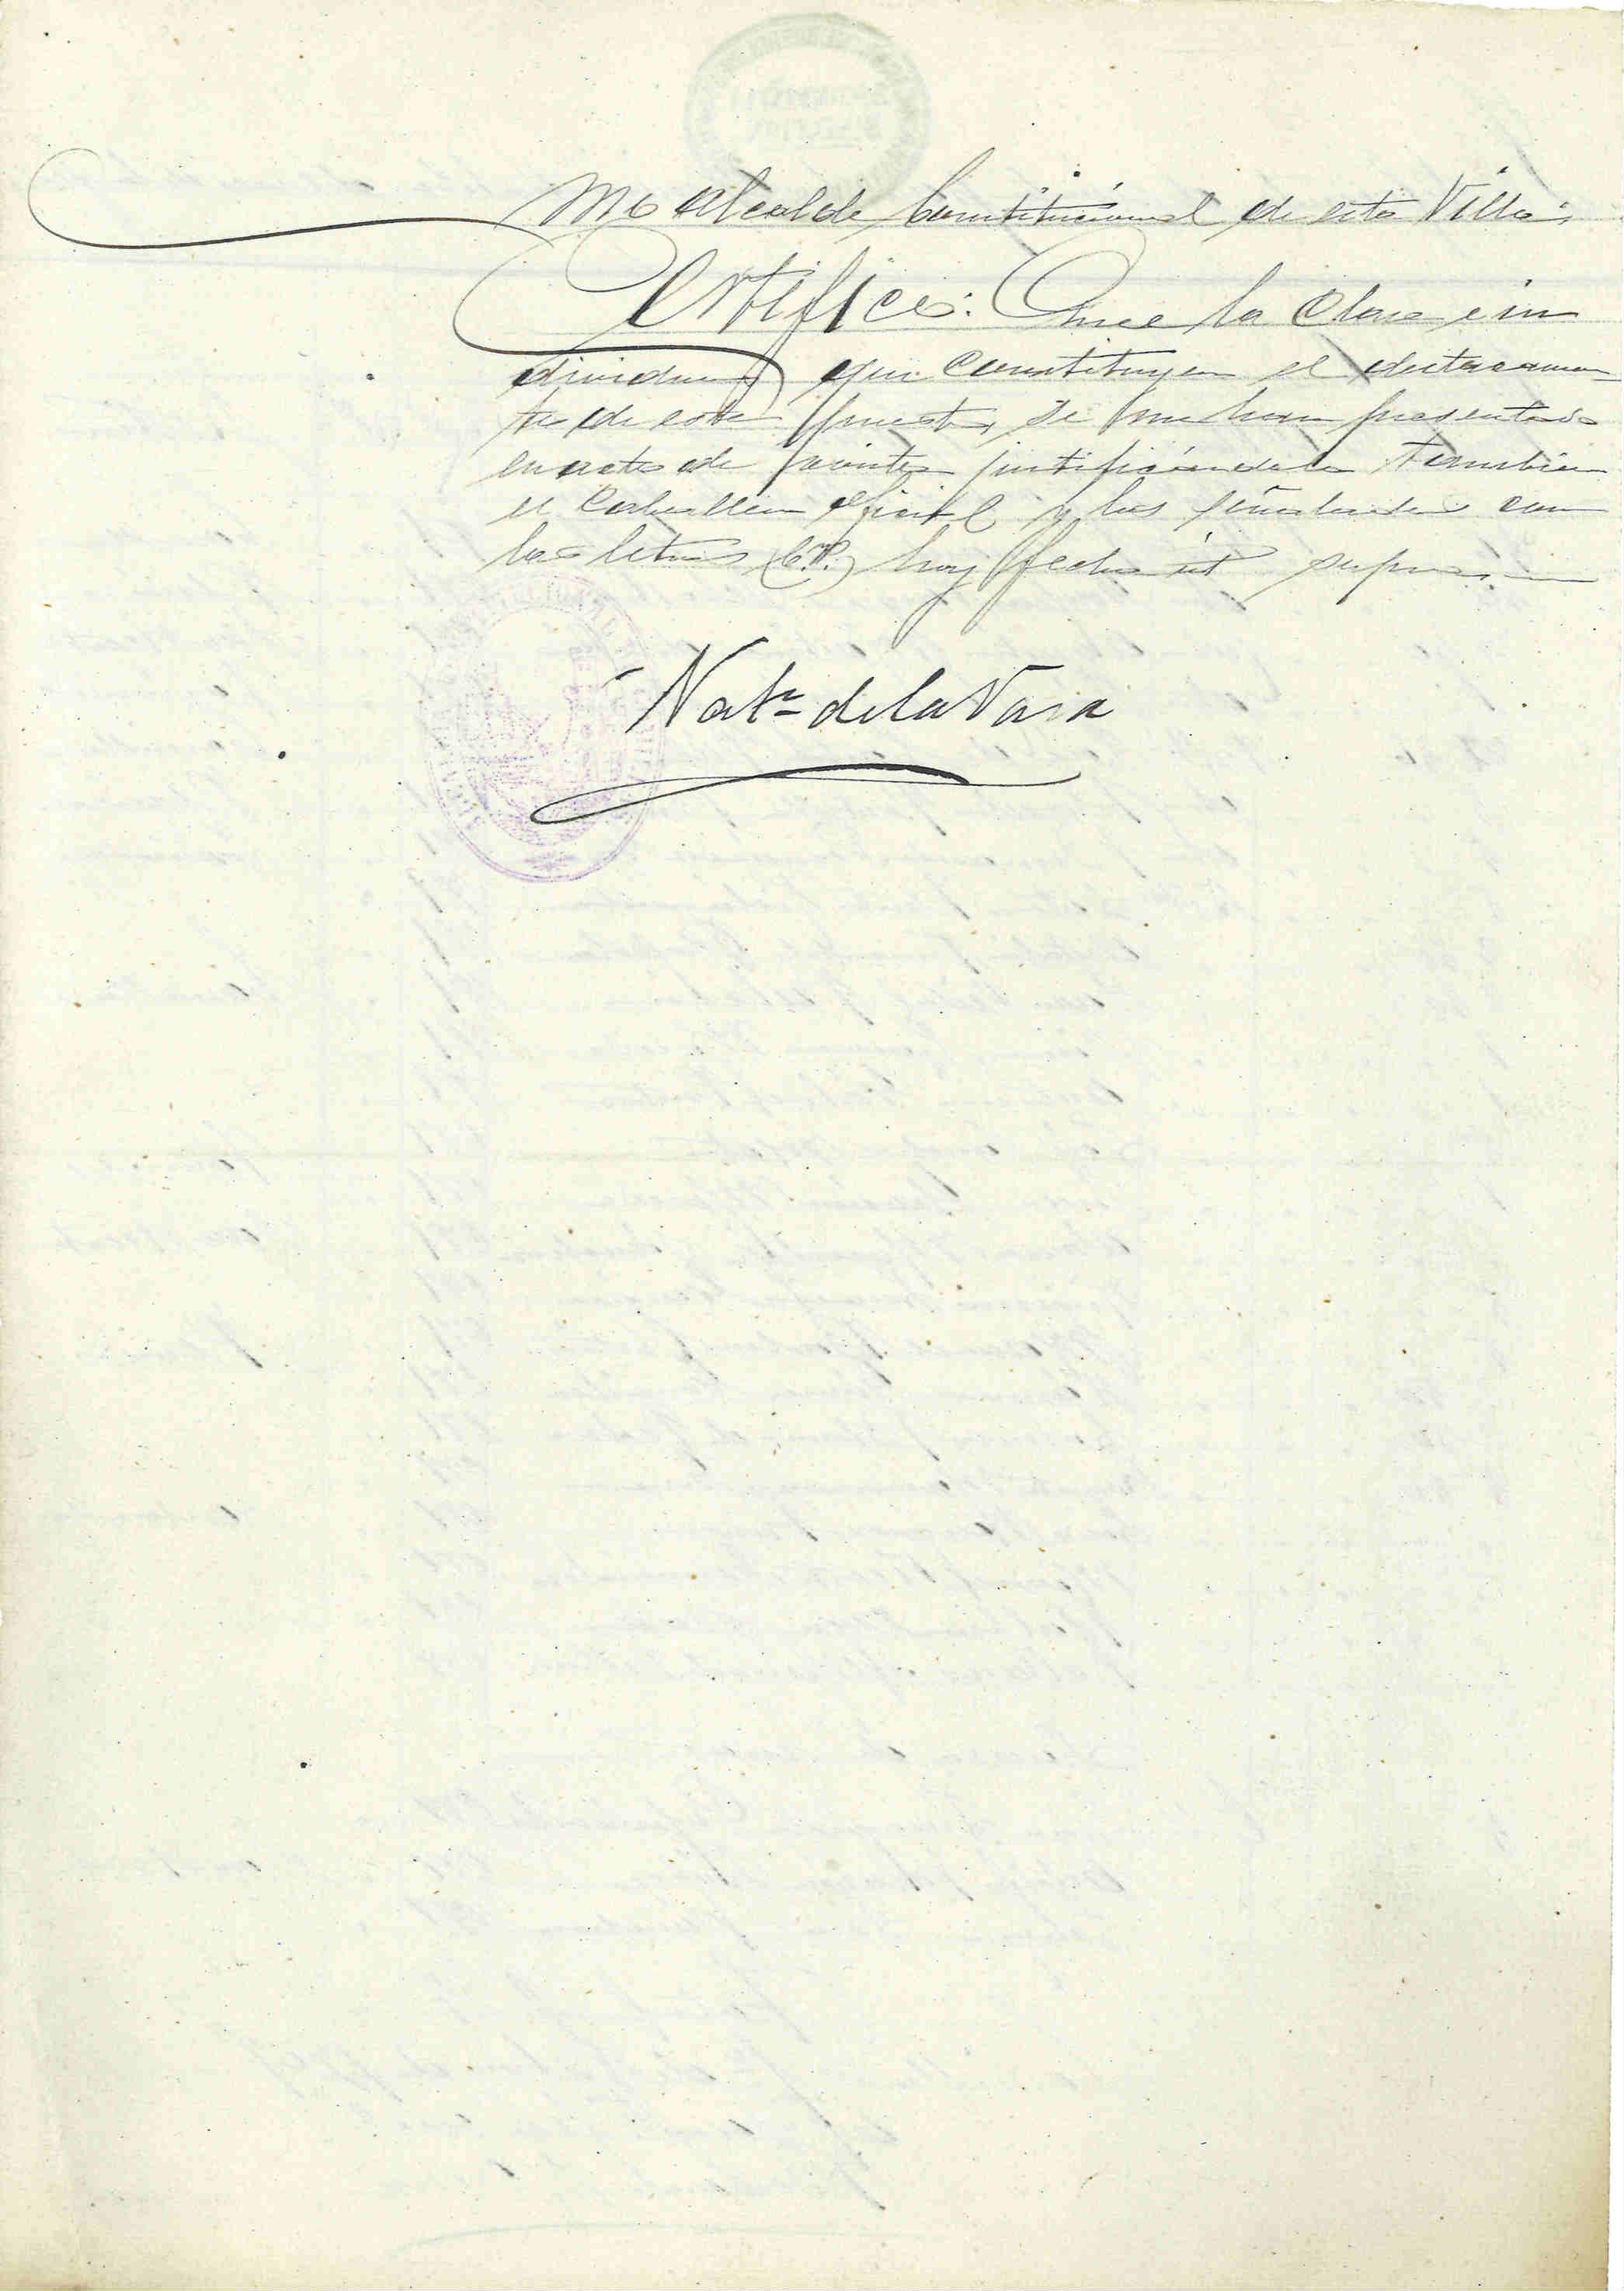 Alcalde Constitucional de esta Villa;
Certifico: Que la Clase é in
dividuos que Constituyen el destacamen-
to de este puesto, se me han presentado
en acto de revista justificándola tambien
el Caballero oficial y los señalados con
las letras (C.P.) hoy fecha ut supra.
Nat.º de la Vara